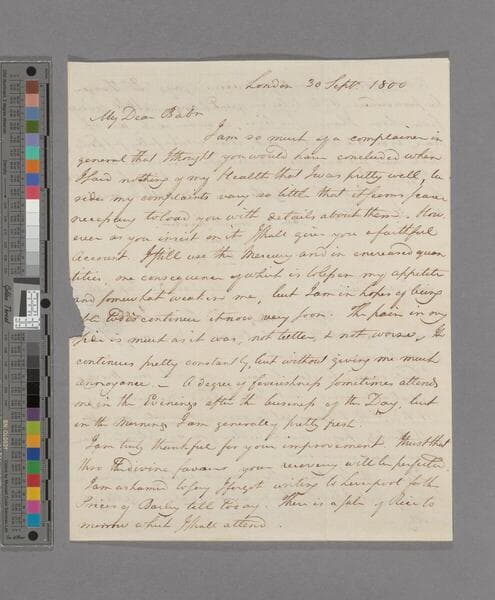 London 30 Sept 1800
My Dear
I am so much of a complainer in
general that I thought you would have concluded when
I said nothing of my Health that I was pretty well, be
sides my complaints vary so little that it seems scarce
necessary to load you with details about them. How
ever as you insist on it I shall give you a faithful
account. I still use the Mercury and in encreased quan
tities one consequence of which is to lessen my appetite
and somewhat weaken me, but I am in hopes of being
to discontinue it now very soon. The pain in my
side is much as it was, not better, & not worse, It
continues pretty constantly, but without giving me much
annoyance. – A degree of feverishness sometimes attends
me in the Evenings after the business of the Day, but
in the Morning I am generally pretty fresh.
I am truly thankful for your improvement I trust that
thro the divine favour your recovery will be perfected.
I am ashamed to say I forgot writing to Liverpool for the
Prices of Barley till today. There is a sale of Rice to
morrow which I shall attend.